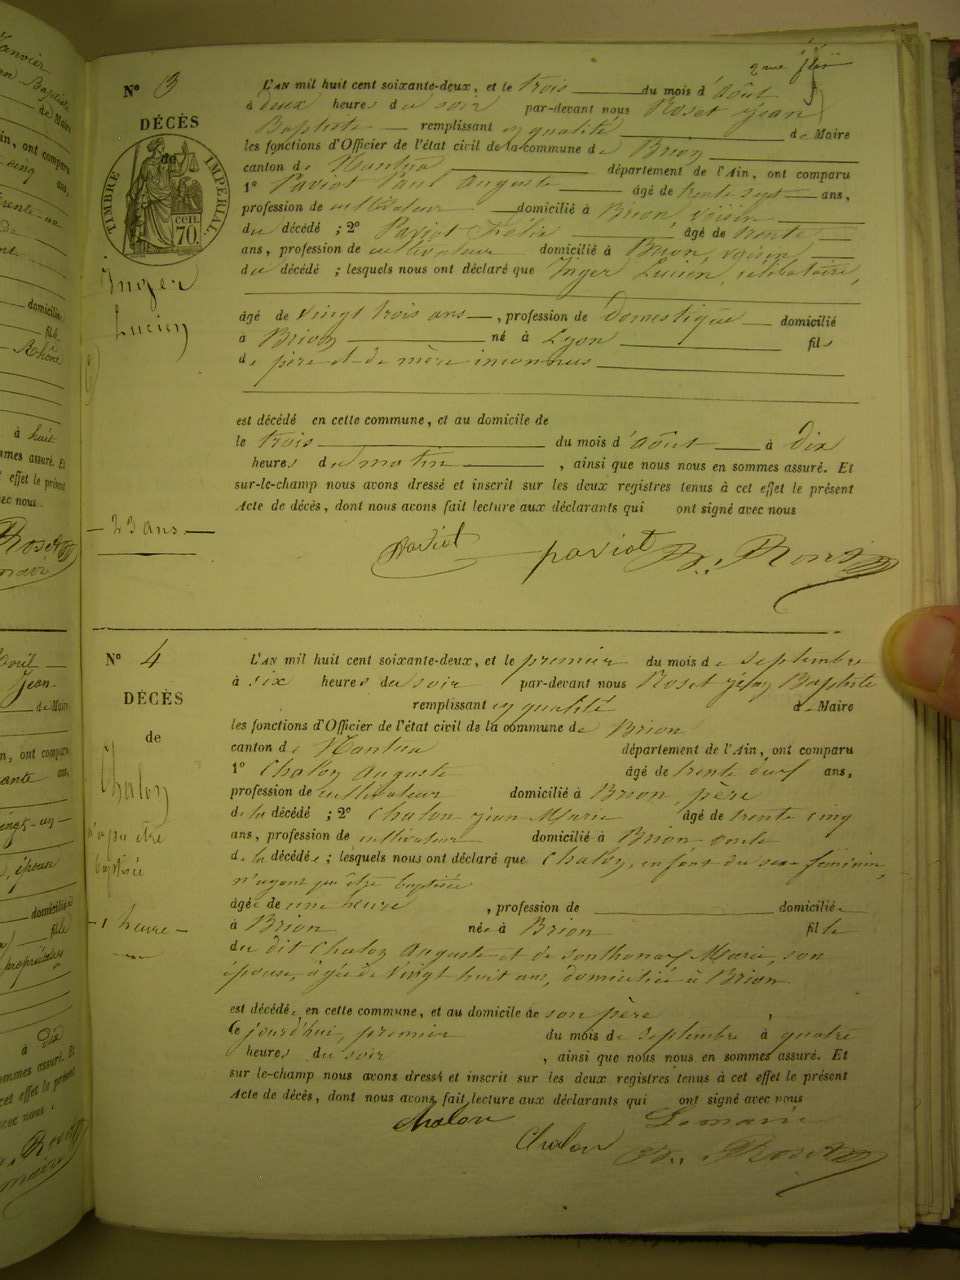 2me flle
N° 3
DÉCÈS
de
TIMBRE IMPÉRIAL
70. cen.
Inger
Lucien
— 23 ans —
L'AN mil huit cent soixante-deux, et le trois du mois d'Août
à deux heures du soir par-devant nous Roset Jean
Baptiste remplissant en qualité de Maire
les fonctions d'Officier de l'état civil de la commune de Brion
canton de Nantua département de l'Ain, ont comparu
1° Paviot Paul Auguste âgé de trente sept ans,
profession de cultivateur domicilié à Brion, voisin
du décédé ; 2° Paviot Félix âgé de trente
ans, profession de cultivateur domicilié à Brion, voisin
du décédé ; lesquels nous ont déclaré que Inger Lucien, célibataire,
âgé de vingt trois ans, profession de Domestique domicilié
a Brion né à Lyon fils
de père et de mère inconnus
est décédé en cette commune, et au domicile de
le trois du mois d'août à dix
heures du matin, ainsi que nous nous en sommes assuré. Et
sur-le-champ nous avons dressé et inscrit sur les deux registres tenus à cet effet le présent
Acte de décès, dont nous avons fait lecture aux déclarants qui ont signé avec nous
Paviot paviot B. Roset
N° 4
DÉCÈS
de
Chalon
n'a pu être
baptisée
— 1 heure —
L'AN mil huit cent soixante-deux, et le premier du mois de Septembre
à six heures du soir par-devant nous Roset Jean Baptiste
remplissant en qualité de Maire
les fonctions d'Officier de l'état civil de la commune de Brion
canton de Nantua département de l'Ain, ont comparu
1° Chalon Auguste âgé de trente neuf ans,
profession de cultivateur domicilié à Brion, père
de la décédé ; 2° Chalon Jean Marie âgé de trente cinq
ans, profession de cultivateur domicilié à Brion oncle
de la décédée ; lesquels nous ont déclaré que Chalon, enfant du sexe féminin,
n'ayant pu être baptisée
âgée de une heure, profession de domiciliée
à Brion née à Brion fille
du dit Chalon Auguste et de Sonthonax Marie, son
épouse, âgée de vingt huit ans, domiciliée à Brion
est décédée en cette commune, et au domicile de son père,
Ce jourd'hui, premier du mois de Septembre à quatre
heures du soir, ainsi que nous nous en sommes assuré. Et
sur le-champ nous avons dressé et inscrit sur les deux registres tenus à cet effet le présent
Acte de décès, dont nous avons fait lecture aux déclarants qui ont signé avec nous
Chalon Le maire
Chalon B. Roset